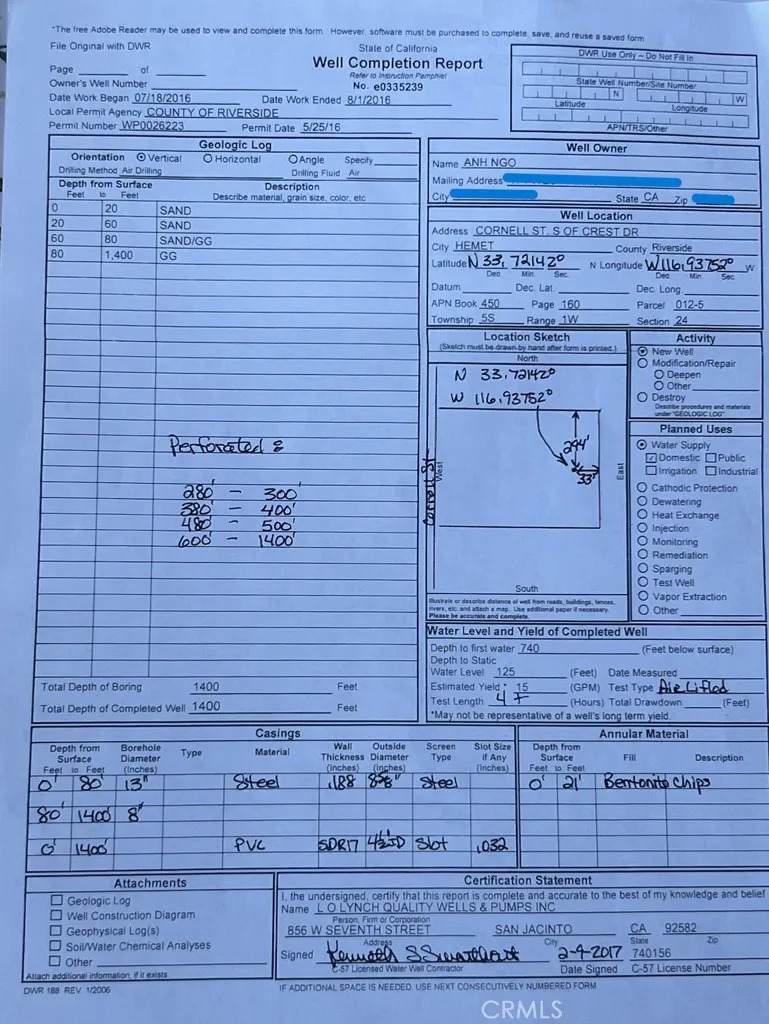 *The free Adobe Reader may be used to view and complete this form. However, software must be purchased to complete, save, and reuse a saved form.
File Original with DWR
State of California
Well Completion Report
Refer to Instruction Pamphlet
No. e0335239
DWR Use Only – Do Not Fill In
State Well Number/Site Number
N W
Latitude Longitude
APN/TRS/Other
Page ___ of ___
Owner's Well Number
Date Work Began 07/18/2016 Date Work Ended 8/1/2016
Local Permit Agency COUNTY OF RIVERSIDE
Permit Number WP0026223 Permit Date 5/25/16
Geologic Log
Orientation Vertical Horizontal Angle Specify
Drilling Method Air Drilling Drilling Fluid Air
Depth from Surface Description
Feet to Feet Describe material, grain size, color, etc
0 20 SAND
20 60 SAND
60 80 SAND/GG
80 1,400 GG
Perforated :
280' – 300'
380' – 400'
480' – 500'
600' – 1400'
Total Depth of Boring 1400 Feet
Total Depth of Completed Well 1400 Feet
Well Owner
Name ANH NGO
Mailing Address
City State CA Zip
Well Location
Address CORNELL ST. S OF CREST DR
City HEMET County Riverside
Latitude N 33.72142° N Longitude W116.93752° W
Deg. Min. Sec. Deg. Min. Sec.
Datum Dec. Lat. Dec. Long.
APN Book 450 Page 160 Parcel 012-5
Township 5S Range 1W Section 24
Location Sketch
(Sketch must be drawn by hand after form is printed.)
North
N 33.72142°
W 116.93752°
294'
33'
Cornell St.
West
East
South
Illustrate or describe distance of well from roads, buildings, fences,
rivers, etc. and attach a map. Use additional paper if necessary.
Please be accurate and complete.
Activity
New Well
Modification/Repair
Deepen
Other
Destroy
Describe procedures and materials
under "GEOLOGIC LOG"
Planned Uses
Water Supply
Domestic Public
Irrigation Industrial
Cathodic Protection
Dewatering
Heat Exchange
Injection
Monitoring
Remediation
Sparging
Test Well
Vapor Extraction
Other
Water Level and Yield of Completed Well
Depth to first water 740 (Feet below surface)
Depth to Static
Water Level 125 (Feet) Date Measured
Estimated Yield * 15 (GPM) Test Type Air Lifted
Test Length 4 + (Hours) Total Drawdown (Feet)
*May not be representative of a well's long term yield.
Casings
Depth from Surface Feet to Feet Borehole Diameter (Inches) Type Material Wall Thickness (Inches) Outside Diameter (Inches) Screen Type Slot Size if Any (Inches)
0' 80' 13" Steel .188 8 5/8" Steel
80' 1400' 8"
0' 1400' PVC SDR17 4½ Slot .032
Annular Material
Depth from Surface Feet to Feet Fill Description
0' 21' Bentonite Chips
Attachments
Geologic Log
Well Construction Diagram
Geophysical Log(s)
Soil/Water Chemical Analyses
Other
Attach additional information, if it exists.
Certification Statement
I, the undersigned, certify that this report is complete and accurate to the best of my knowledge and belief
Name L O LYNCH QUALITY WELLS & PUMPS INC
Person, Firm or Corporation
856 W SEVENTH STREET SAN JACINTO CA 92582
Address City State Zip
Signed Kenneth S Swarthout 2-4-2017 740156
C-57 Licensed Water Well Contractor Date Signed C-57 License Number
DWR 188 REV. 1/2006
IF ADDITIONAL SPACE IS NEEDED, USE NEXT CONSECUTIVELY NUMBERED FORM
CRMLS